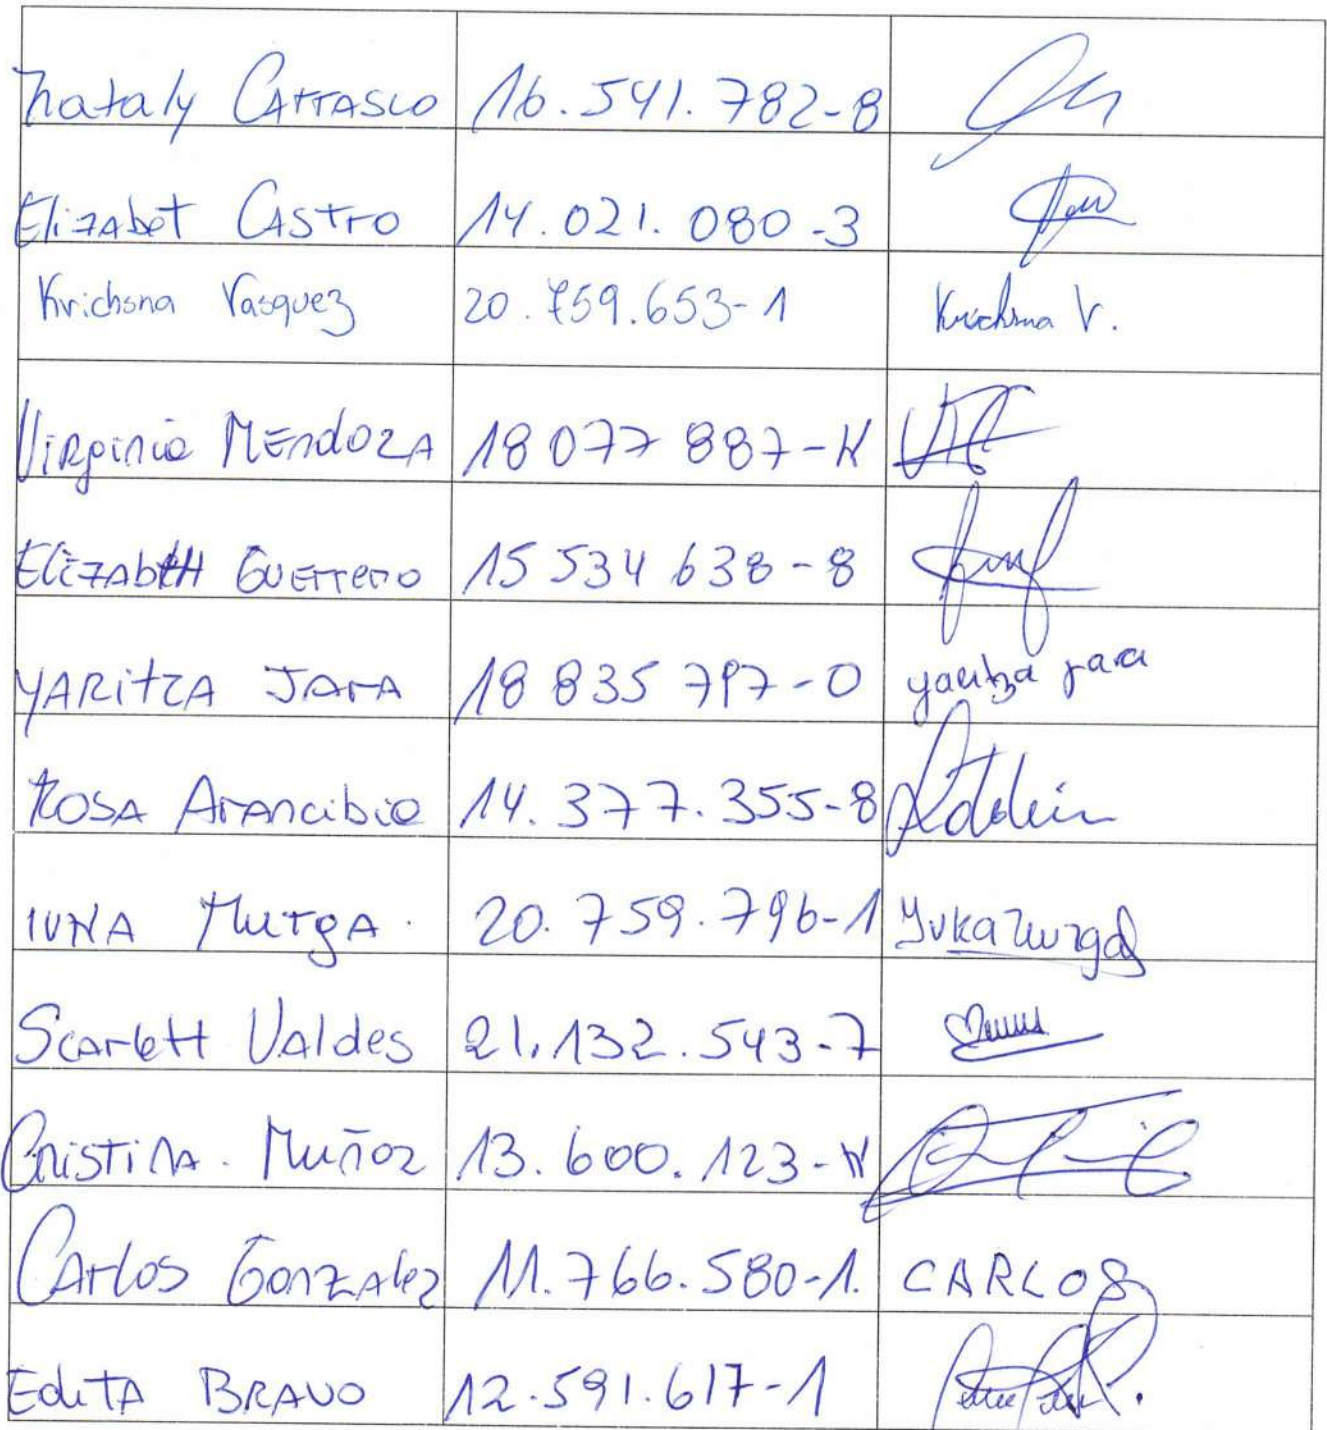 Nataly Carrasco 16.541.782-8
Elizabet Castro 14.021.080-3
Krichsna Vasquez 20.759.653-1 Krichsna V.
Virginia Mendoza 18 077 887-K
Elizabeth Guerrero 15 534 638-8
Yaritza Jara 18 835 797-0 yaritza jara
Rosa Arancibia 14.377.355-8
IVKA Murga. 20.759.796-1 Ivka Murga
Scarlett Valdes 21.132.543-7
Cristina. Muñoz 13.600.123-K
Carlos Gonzalez 11.766.580-1. CARLOS
Edita BRAVO 12.591.617-1